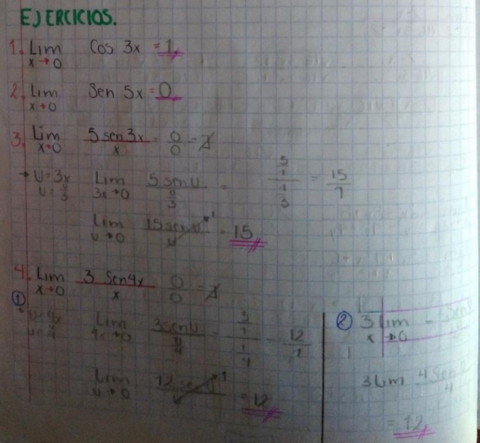 EJERCICIOS.
1. Lim x→0 Cos 3x = 1
2. Lim x→0 Sen 5x = 0
3. Lim x→0 5 sen 3x / x = 0/0 =
u = 3x Lim 3x→0 5 sen u / u/3 = 5/1 / 1/3 = 15/1
Lim u→0 15 sen u / u = 15
4. Lim x→0 3 Sen 4x / x 0/0 =
① u = 4x Lim 4x→0 3 sen u / u/4 = 3/1 / 1/4 = 12/1
Lim u→0 = 12
② 3 Lim x→0
3 Lim
= 12